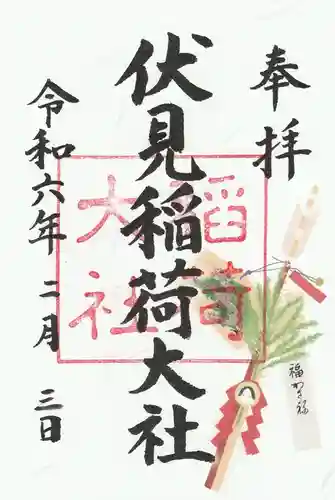 奉拝
伏見稲荷大社
令和六年二月三日
稲荷
大社